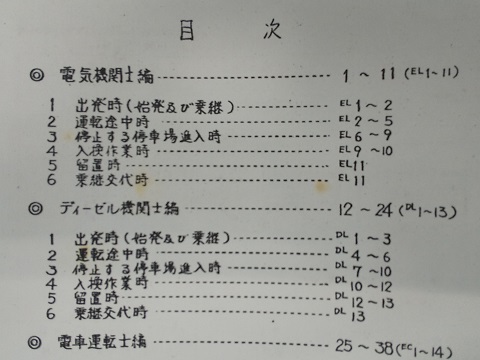 目 次
◎ 電気機関士編 1〜11(EL1〜11)
1 出発時(始発及び乗継) EL1〜2
2 運転途中時 EL2〜5
3 停止する停車場進入時 EL6〜9
4 入換作業時 EL9〜10
5 留置時 EL11
6 乗継交代時 EL11
◎ ディーゼル機関士編 12〜24(DL1〜13)
1 出発時(始発及び乗継) DL1〜3
2 運転途中時 DL4〜6
3 停止する停車場進入時 DL7〜10
4 入換作業時 DL10〜12
5 留置時 DL12〜13
6 乗継交代時 DL13
◎ 電車運転士編 25〜38(EC1〜14)